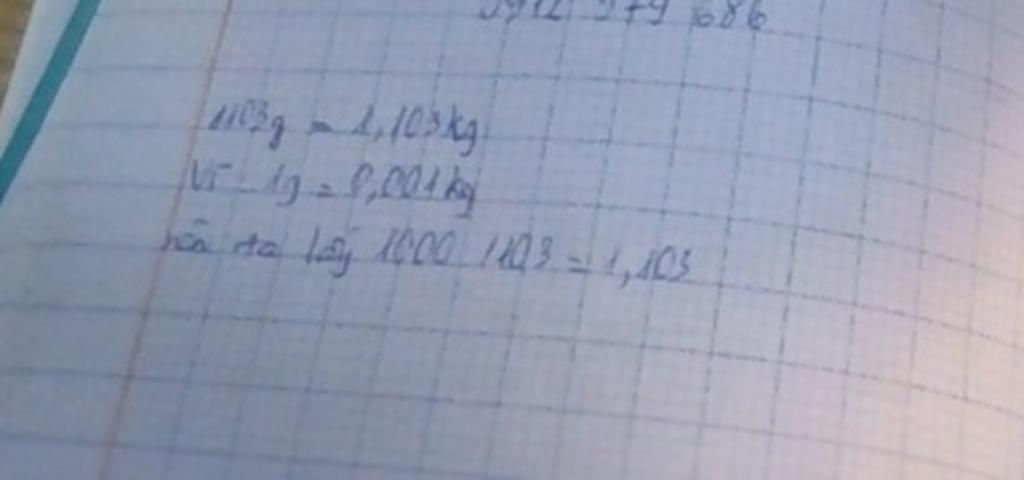 686
1103g = 1,103kg
Vì 1g = 0,001kg
nên ta lấy 1000 1103 = 1,103